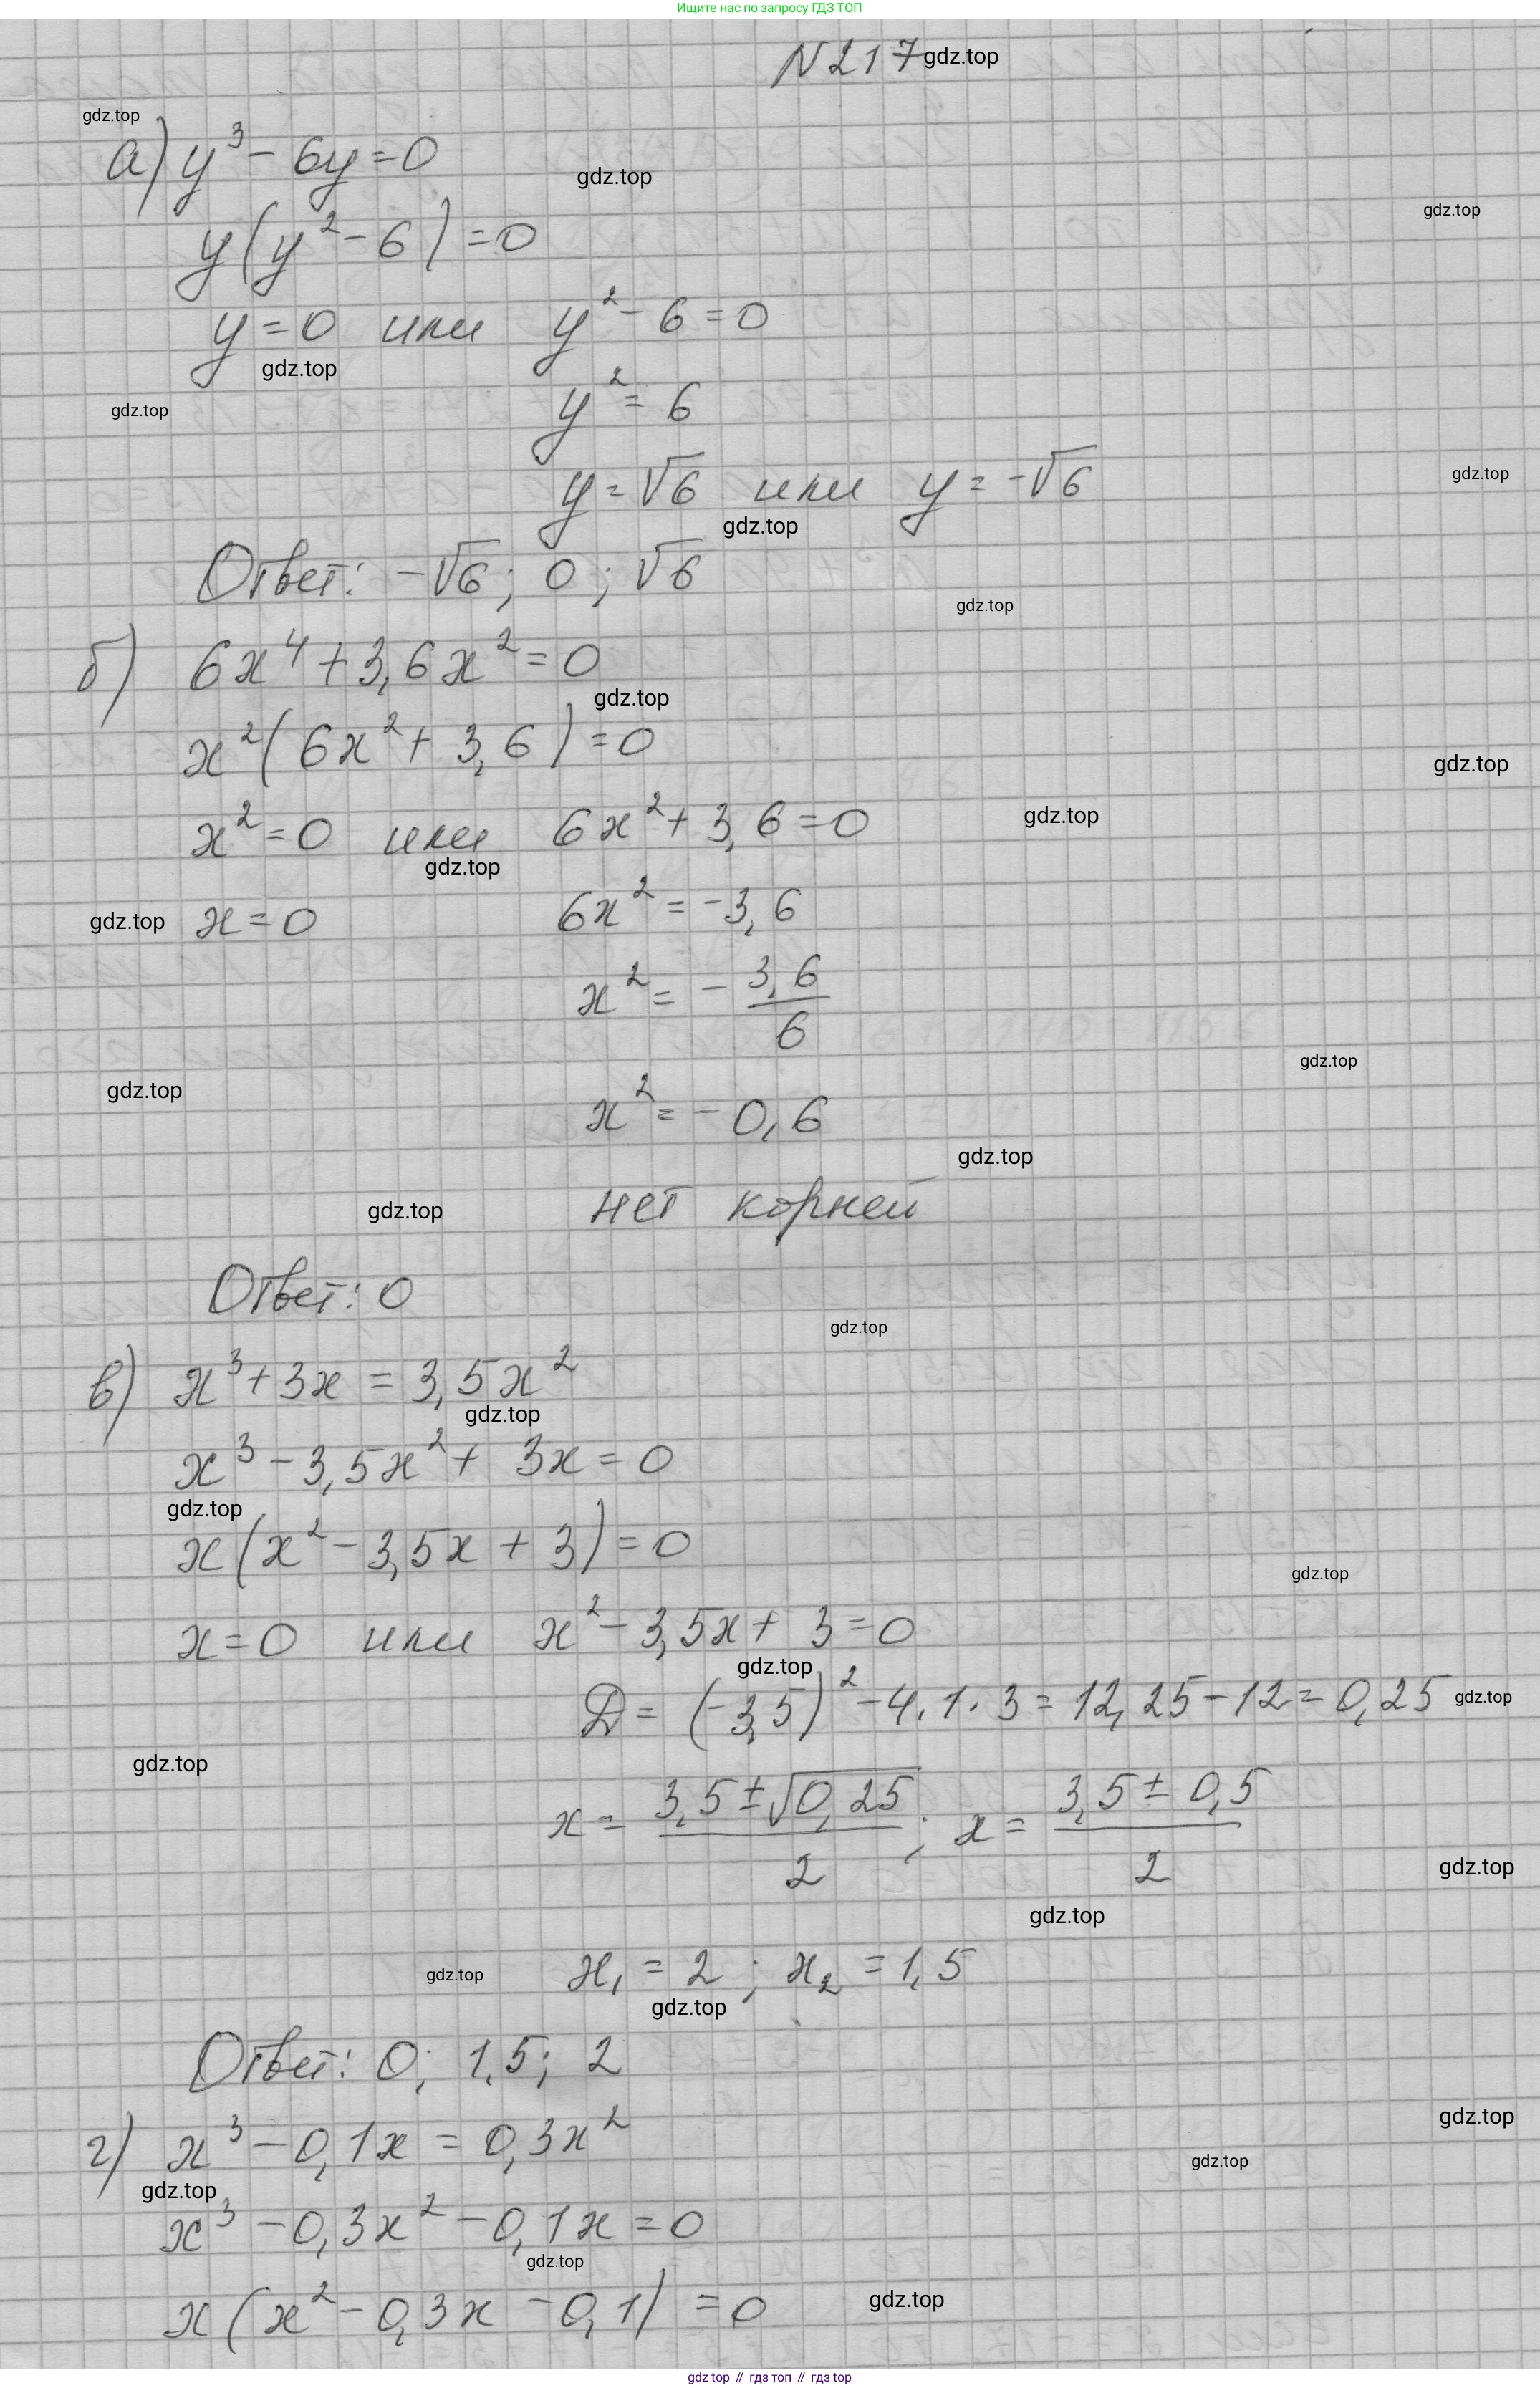 Ищите нас по запросу ГДЗ ТОП
N217 gdz.top
gdz.top
а) y³ - 6y = 0
gdz.top
gdz.top
y(y² - 6) = 0
y = 0 или y² - 6 = 0
gdz.top
gdz.top
y² = 6
gdz.top
y = √6 или y = -√6
gdz.top
Ответ: -√6; 0; √6
gdz.top
б) 6x⁴ + 3,6x² = 0
gdz.top
x²(6x² + 3,6) = 0
gdz.top
x² = 0 или 6x² + 3,6 = 0
gdz.top
gdz.top
gdz.top
x = 0 6x² = -3,6
x² = - 3,6/6
gdz.top
gdz.top
x² = -0,6
gdz.top
gdz.top
нет корней
Ответ: 0
gdz.top
в) x³ + 3x = 3,5x²
gdz.top
x³ - 3,5x² + 3x = 0
gdz.top
x(x² - 3,5x + 3) = 0
gdz.top
x = 0 или x² - 3,5x + 3 = 0
gdz.top
D = (-3,5)² - 4·1·3 = 12,25 - 12 = 0,25
gdz.top
gdz.top
x = (3,5 ± √0,25)/2; x = (3,5 ± 0,5)/2
gdz.top
gdz.top
gdz.top
x₁ = 2; x₂ = 1,5
gdz.top
Ответ: 0; 1,5; 2
gdz.top
г) x³ - 0,1x = 0,3x²
gdz.top
gdz.top
x³ - 0,3x² - 0,1x = 0
gdz.top
x(x² - 0,3x - 0,1) = 0
gdz.top
gdz top // гдз топ // гдз top